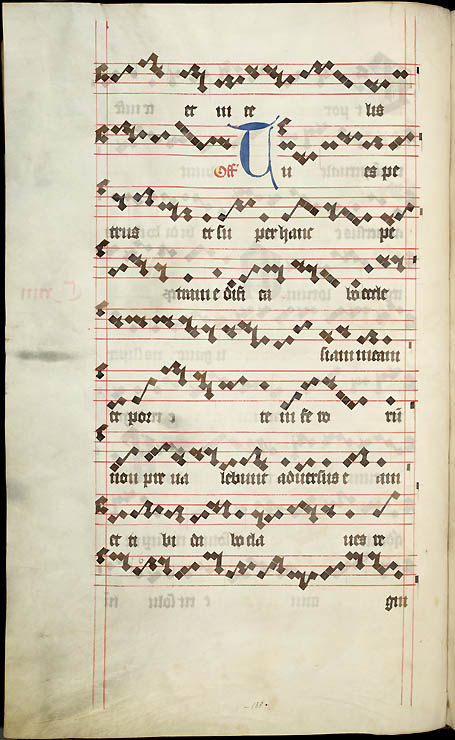 et in te lis
Off Tu es pe
trus et su per hanc pe
tram e difi ca bo eccle
siam meam
et por te in fe ro rū
non pre va lebunt adversus e am
et ti bi da bo cla ves re
gni